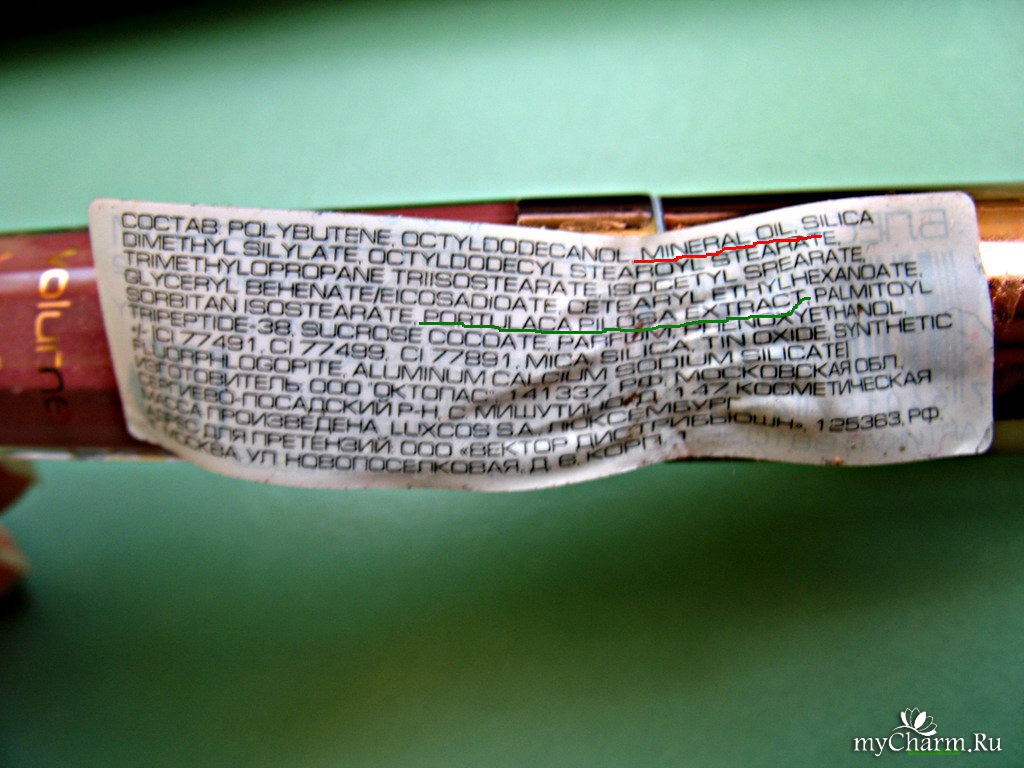 СОСТАВ: POLYBUTENE, OCTYLDODECANOL, MINERAL OIL, SILICA
DIMETHYL SILYLATE, OCTYLDODECYL STEAROYL STEARATE,
TRIMETHYLOPROPANE TRIISOSTEARATE, ISOCETYL SREARATE,
GLYCERYL BEHENATE/EICOSADIOATE, CETEARYL ETHYLHEXANOATE,
SORBITAN ISOSTEARATE, PORTULACA PILOSA EXTRACT, PALMITOYL
TRIPEPTIDE-38, SUCROSE COCOATE, PARFUM, PHENOXYETHANOL,
+-(CI 77491, CI 77499, CI 77891, MICA, SILICA, TIN OXIDE, SYNTHETIC
FLUORPHLOGOPITE, ALUMINUM CALCIUM SODIUM SILICATE)
ИЗГОТОВИТЕЛЬ: ООО "ОКТОПАС", 141337, РФ, МОСКОВСКАЯ ОБЛ.,
СЕРГИЕВО-ПОСАДСКИЙ Р-Н, С. МИШУТИНО, Д. 147. КОСМЕТИЧЕСКАЯ
МАССА ПРОИЗВЕДЕНА: LUXCOS S.A., ЛЮКСЕМБУРГ
АДРЕС ДЛЯ ПРЕТЕНЗИЙ: ООО «ВЕКТОР ДИСТРИБЬЮШН», 125363, РФ,
Г. МОСКВА, УЛ. НОВОПОСЕЛКОВАЯ, Д. 6, КОРП. 1
Volume
myCharm.Ru